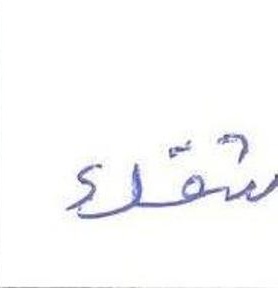 شقراء